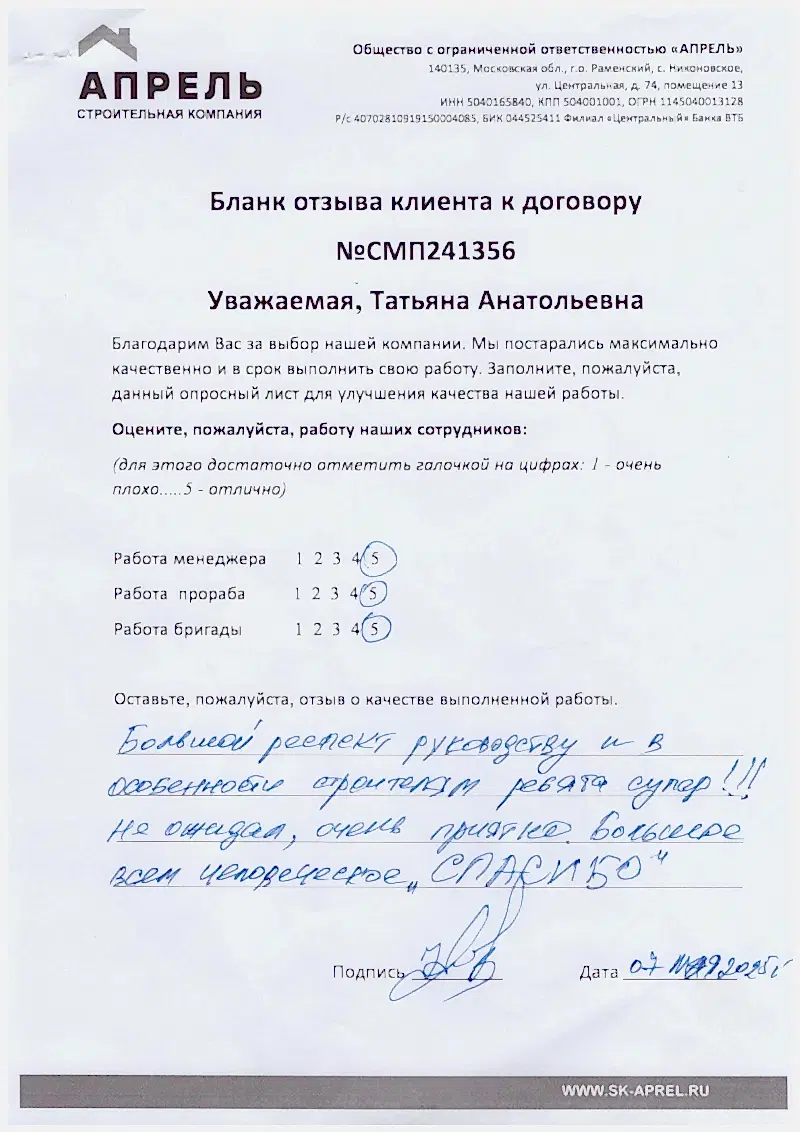 АПРЕЛЬ
СТРОИТЕЛЬНАЯ КОМПАНИЯ
Общество с ограниченной ответственностью «АПРЕЛЬ»
140135, Московская обл., г.о. Раменский, с. Никоновское,
ул. Центральная, д. 74, помещение 13
ИНН 5040165840, КПП 504001001, ОГРН 1145040013128
Р/с 40702810919150004085, БИК 044525411 Филиал «Центральный» Банка ВТБ
Бланк отзыва клиента к договору
№СМП241356
Уважаемая, Татьяна Анатольевна
Благодарим Вас за выбор нашей компании. Мы постарались максимально
качественно и в срок выполнить свою работу. Заполните, пожалуйста,
данный опросный лист для улучшения качества нашей работы.
Оцените, пожалуйста, работу наших сотрудников:
(для этого достаточно отметить галочкой на цифрах: 1 - очень
плохо.....5 - отлично)
Работа менеджера 1 2 3 4 5
Работа прораба 1 2 3 4 5
Работа бригады 1 2 3 4 5
Оставьте, пожалуйста, отзыв о качестве выполненной работы.
Большой респект руководству и в
особенности строителям ребята супер!!!
Не ожидал, очень приятно. Большое
всем человеческое „СПАСИБО"
Подпись
Дата 07 мая 2025г
WWW.SK-APREL.RU